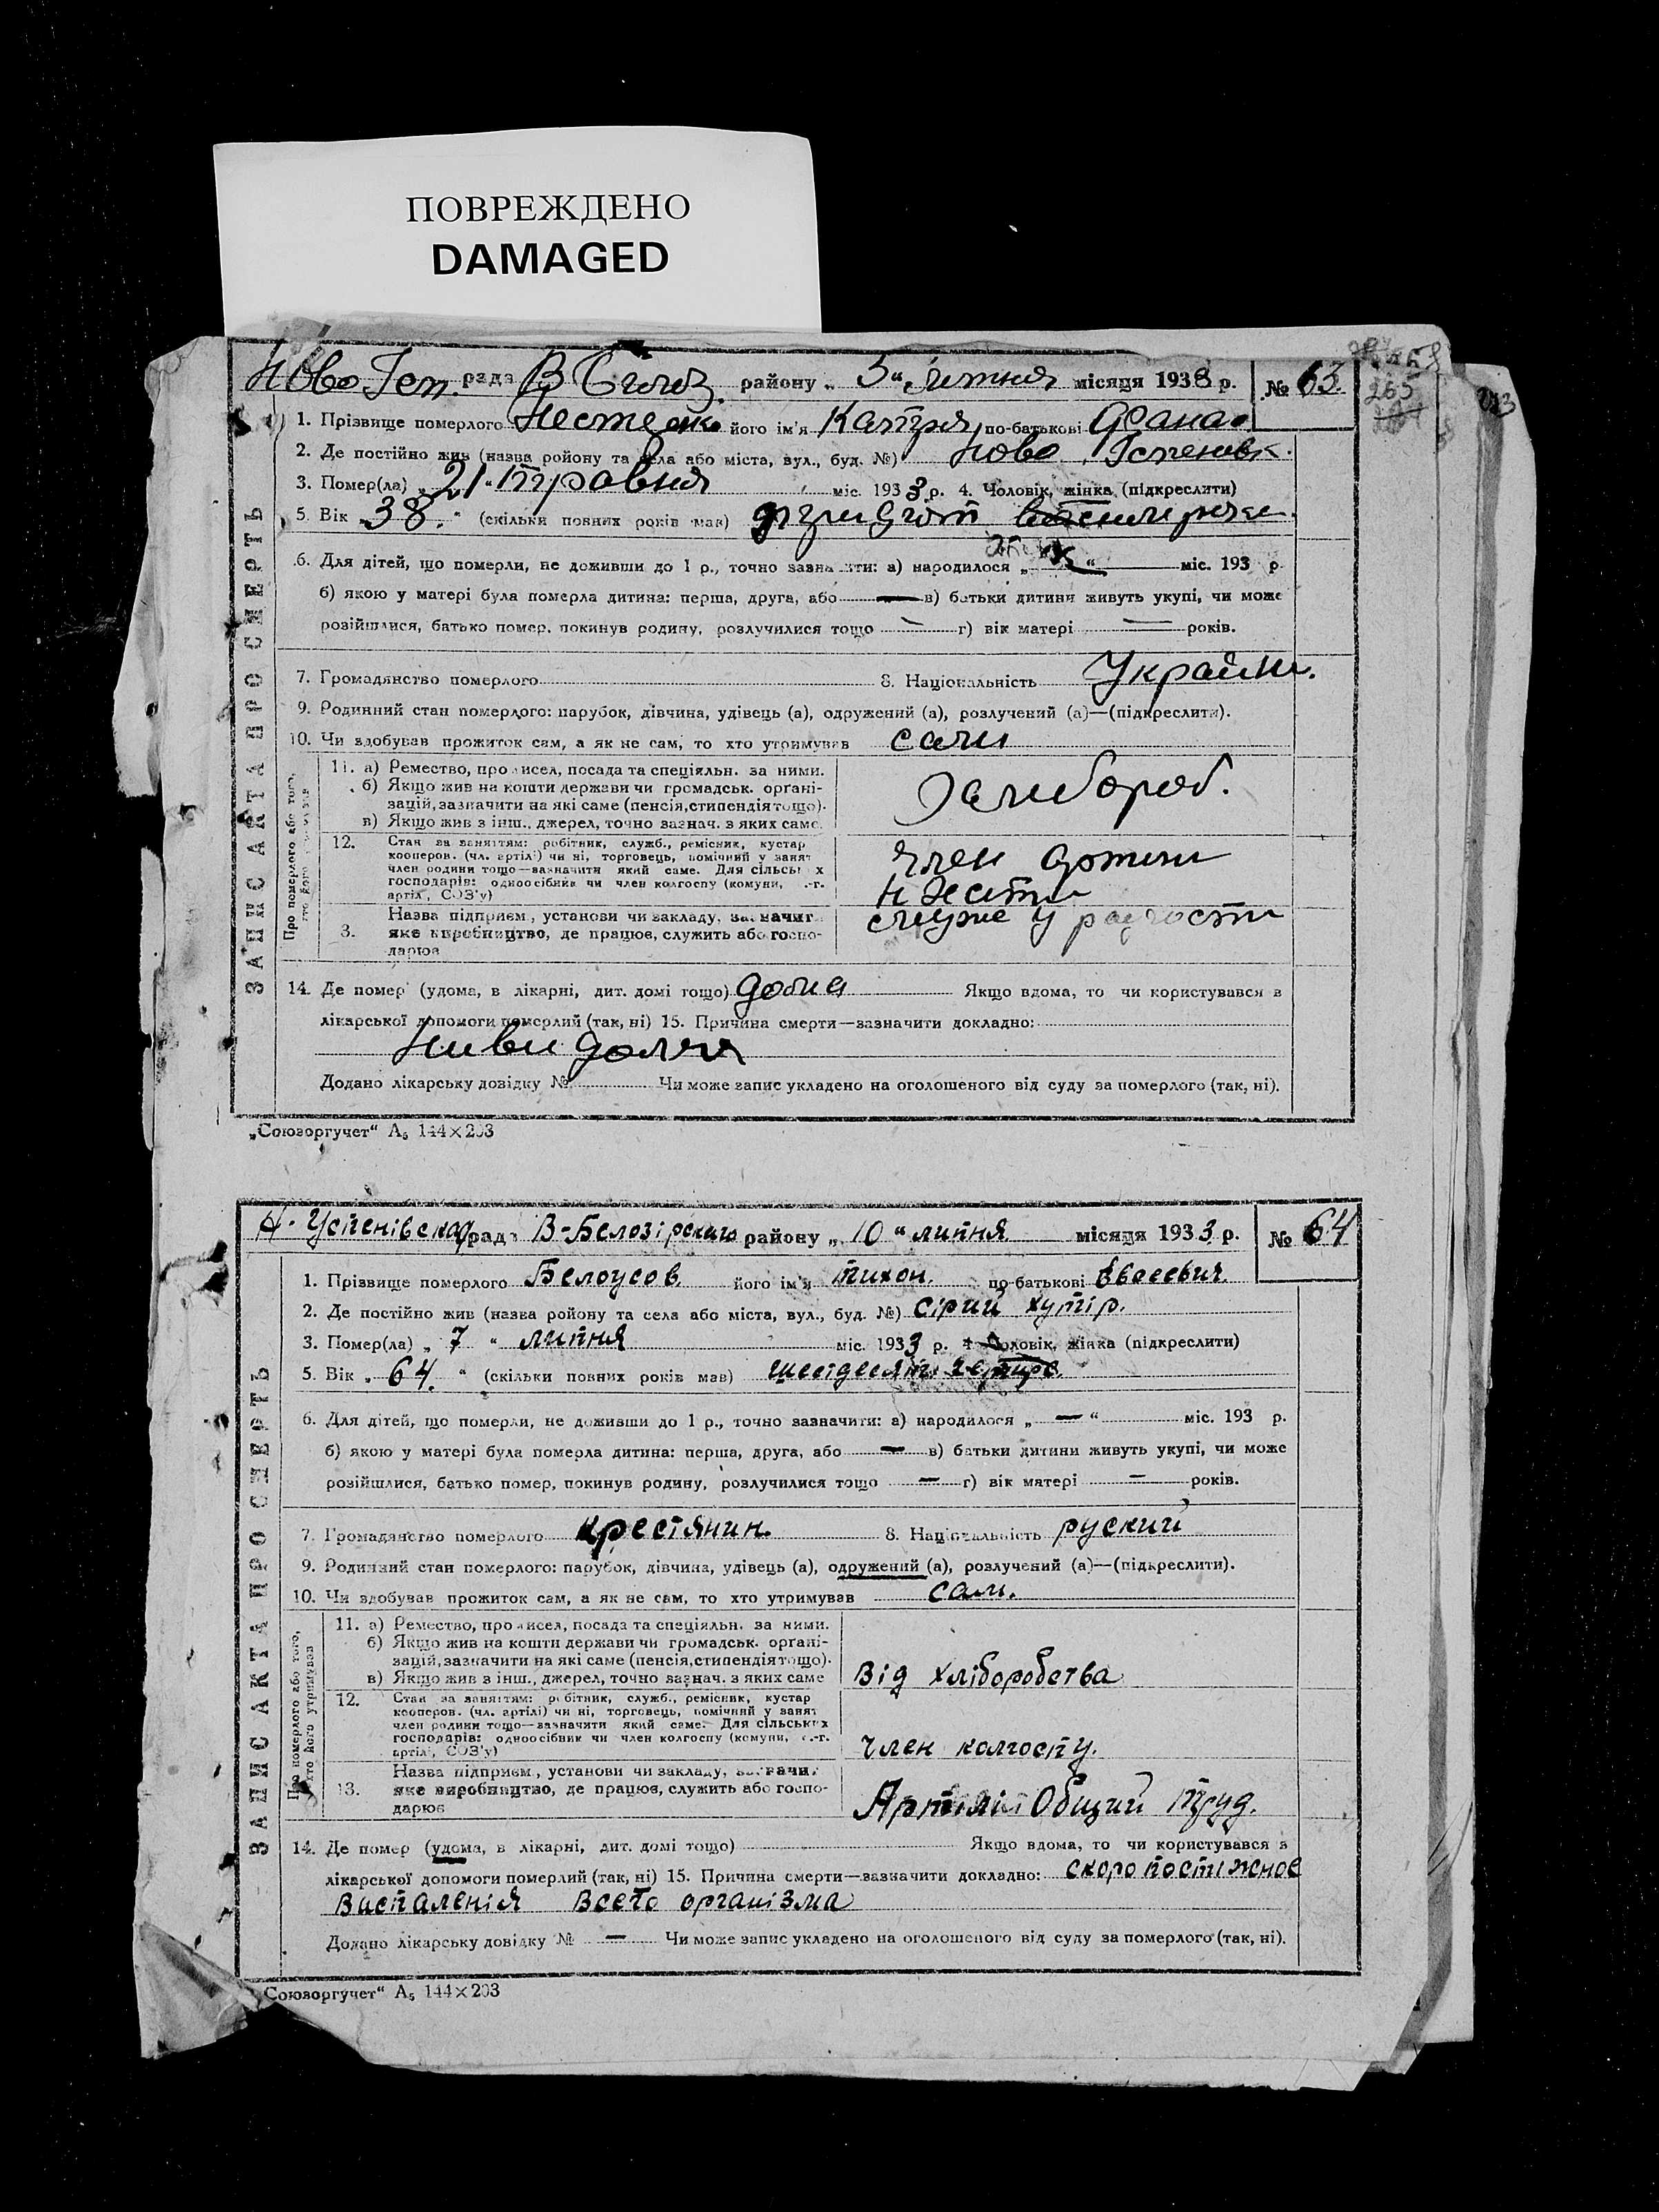 ПОВРЕЖДЕНО
DAMAGED
Ново рада В районy „ 5 “ місяця 1933 р. № 63.
1. Прізвище померлого його ім'я Катря по-батькові Афанас
2. Де постійно жив (назва ройону та села або міста, вул., буд. №) Ново
3. Помер(ла) „ 21 “ травня міс. 1933 р. 4. Чоловік, жінка (підкреслити)
5. Вік „ 38. “ (скільки повних років мав)
6. Для дітей, що померли, не доживши до 1 р., точно зазначити: а) народилося „ “ міс. 193 р.
б) якою у матері була померла дитина: перша, друга, або — в) батьки дитини живуть укупі, чи може
розійшлися, батько помер, покинув родину, розлучилися тощо — г) вік матері — років.
7. Громадянство померлого 8. Національність Украйн.
9. Родинний стан померлого: парубок, дівчина, удівець (а), одружений (а), розлучений (а)—(підкреслити).
10. Чи здобував прожиток сам, а як не сам, то хто утримував сам
ЗАПИС АКТА ПРО СМЕРТЬ
Про померлого або того,
11. а) Ремество, промисел, посада та спеціяльн. за ними.
б) Якщо жив на кошти держави чи громадськ. орґані-
зацій, зазначити на які саме (пенсія, стипендія тощо).
в) Якщо жив з інш., джерел, точно зазнач. з яких саме.
12. Стан за заняттям: робітник, служб., ремісник, кустар
кооперов. (чл. артілі) чи ні, торговець, помічний у занят
член родини тощо—зазначити який саме. Для сільськ х
господарів: одноосібник чи член колгоспу (комуни, с.-г.
артіл', СОЗ'у)
член
Назва підприєм., установи чи закладу, зазначит
3. яке виробництво, де працює, служить або госпо-
дарює
14. Де помер (удома, в лікарні, дит. домі тощо) дома Якщо вдома, то чи користувався в
лікарської допомоги померлий (так, ні) 15. Причина смерти—зазначити докладно:
Додано лікарську довідку № Чи може запис укладено на оголошеного від суду за померлого (так, ні).
„Союзоргучет“ А5 144×203
Н. Успенівска рада В-Белозірского району „ 10 “ липня місяця 1933 р. № 64
1. Прізвище померлого Белоусов його ім'я Тихон. по-батькові Евсеевич.
2. Де постійно жив (назва ройону та села або міста, вул., буд. №) Сірий хутір.
3. Помер(ла) „ 7 “ липня міс. 1933 р. 4 Чоловік, жінка (підкреслити)
5. Вік „ 64. “ (скільки повних років мав) шестдесять четире.
6. Для дітей, що померли, не доживши до 1 р., точно зазначити: а) народилося „ — “ міс. 193 р.
б) якою у матері була померла дитина: перша, друга, або — в) батьки дитини живуть укупі, чи може
розійшлися, батько помер, покинув родину, розлучилися тощо — г) вік матері — років.
7. Громадянство померлого крестянин. 8. Національність руский
9. Родинний стан померлого: парубок, дівчина, удівець (а), одружений (а), розлучений (а)—(підкреслити).
10. Чи здобував прожиток сам, а як не сам, то хто утримував сам.
ЗАПИС АКТА ПРО СМЕРТЬ
Про померлого або того,
хто його утримував
11. а) Ремество, промисел, посада та спеціяльн. за ними.
б) Якщо жив на кошти держави чи громадськ. орґані-
зацій, зазначити на які саме (пенсія, стипендія тощо).
в) Якщо жив з інш., джерел, точно зазнач. з яких саме
Від хліборобства
12. Стан за заняттям: робітник, служб., ремісник, кустар
кооперов. (чл. артілі) чи ні, торговець, помічний у занят
член родини тощо—зазначити який саме. Для сільських
господарів: одноосібник чи член колгоспу (комуни, с.-г.
артіл', СОЗ'у)
Член колгоспу.
Назва підприєм., установи чи закладу, зазначит
13. яке виробництво, де працює, служить або госпо-
дарює
Артілі Общий Труд.
14. Де помер (удома, в лікарні, дит. домі тощо) Якщо вдома, то чи користувався з
лікарської допомоги померлий (так, ні) 15. Причина смерти—зазначити докладно: скоропостижное
Виспаленія Всего організма
Додано лікарську довідку № — Чи може запис укладено на оголошеного від суду за померлого (так, ні).
Союзоргучет“ А5 144×203